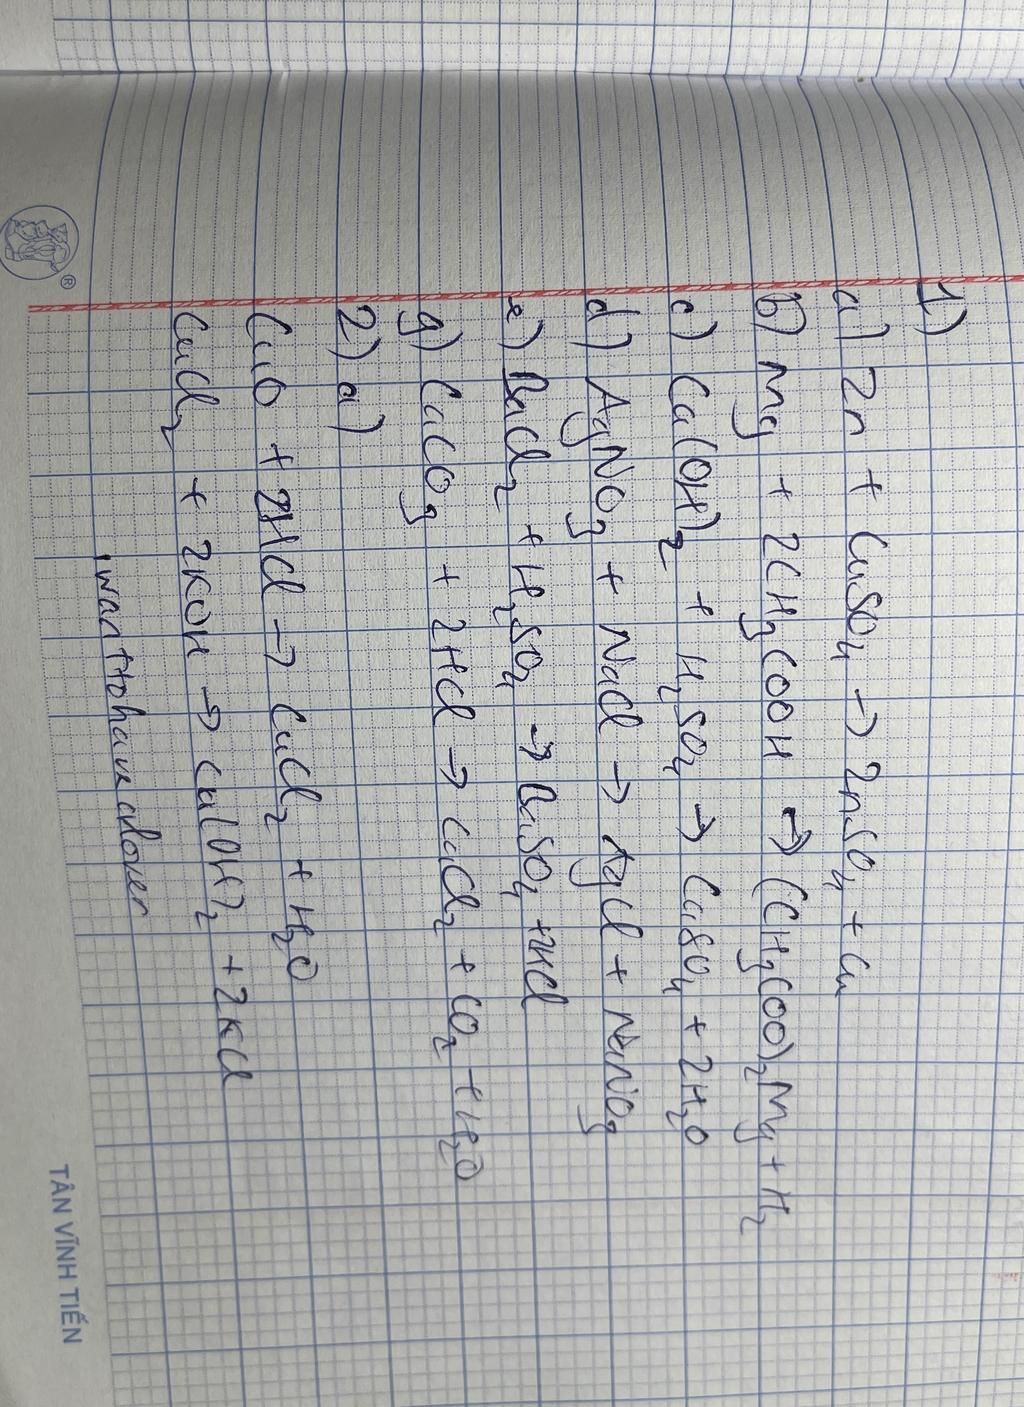 1)
a) Zn + CuSO4 → ZnSO4 + Cu
b) Mg + 2CH3COOH → (CH3COO)2Mg + H2
c) Ca(OH)2 + H2SO4 → CaSO4 + 2H2O
d) AgNO3 + NaCl → AgCl + NaNO3
e) BaCl2 + H2SO4 → BaSO4 + 2HCl
g) CaCO3 + 2HCl → CaCl2 + CO2 + H2O
2) a)
CuO + 2HCl → CuCl2 + H2O
CuCl2 + 2KOH → Cu(OH)2 + 2KCl
i want to have a lover
®
TÂN VĨNH TIẾN